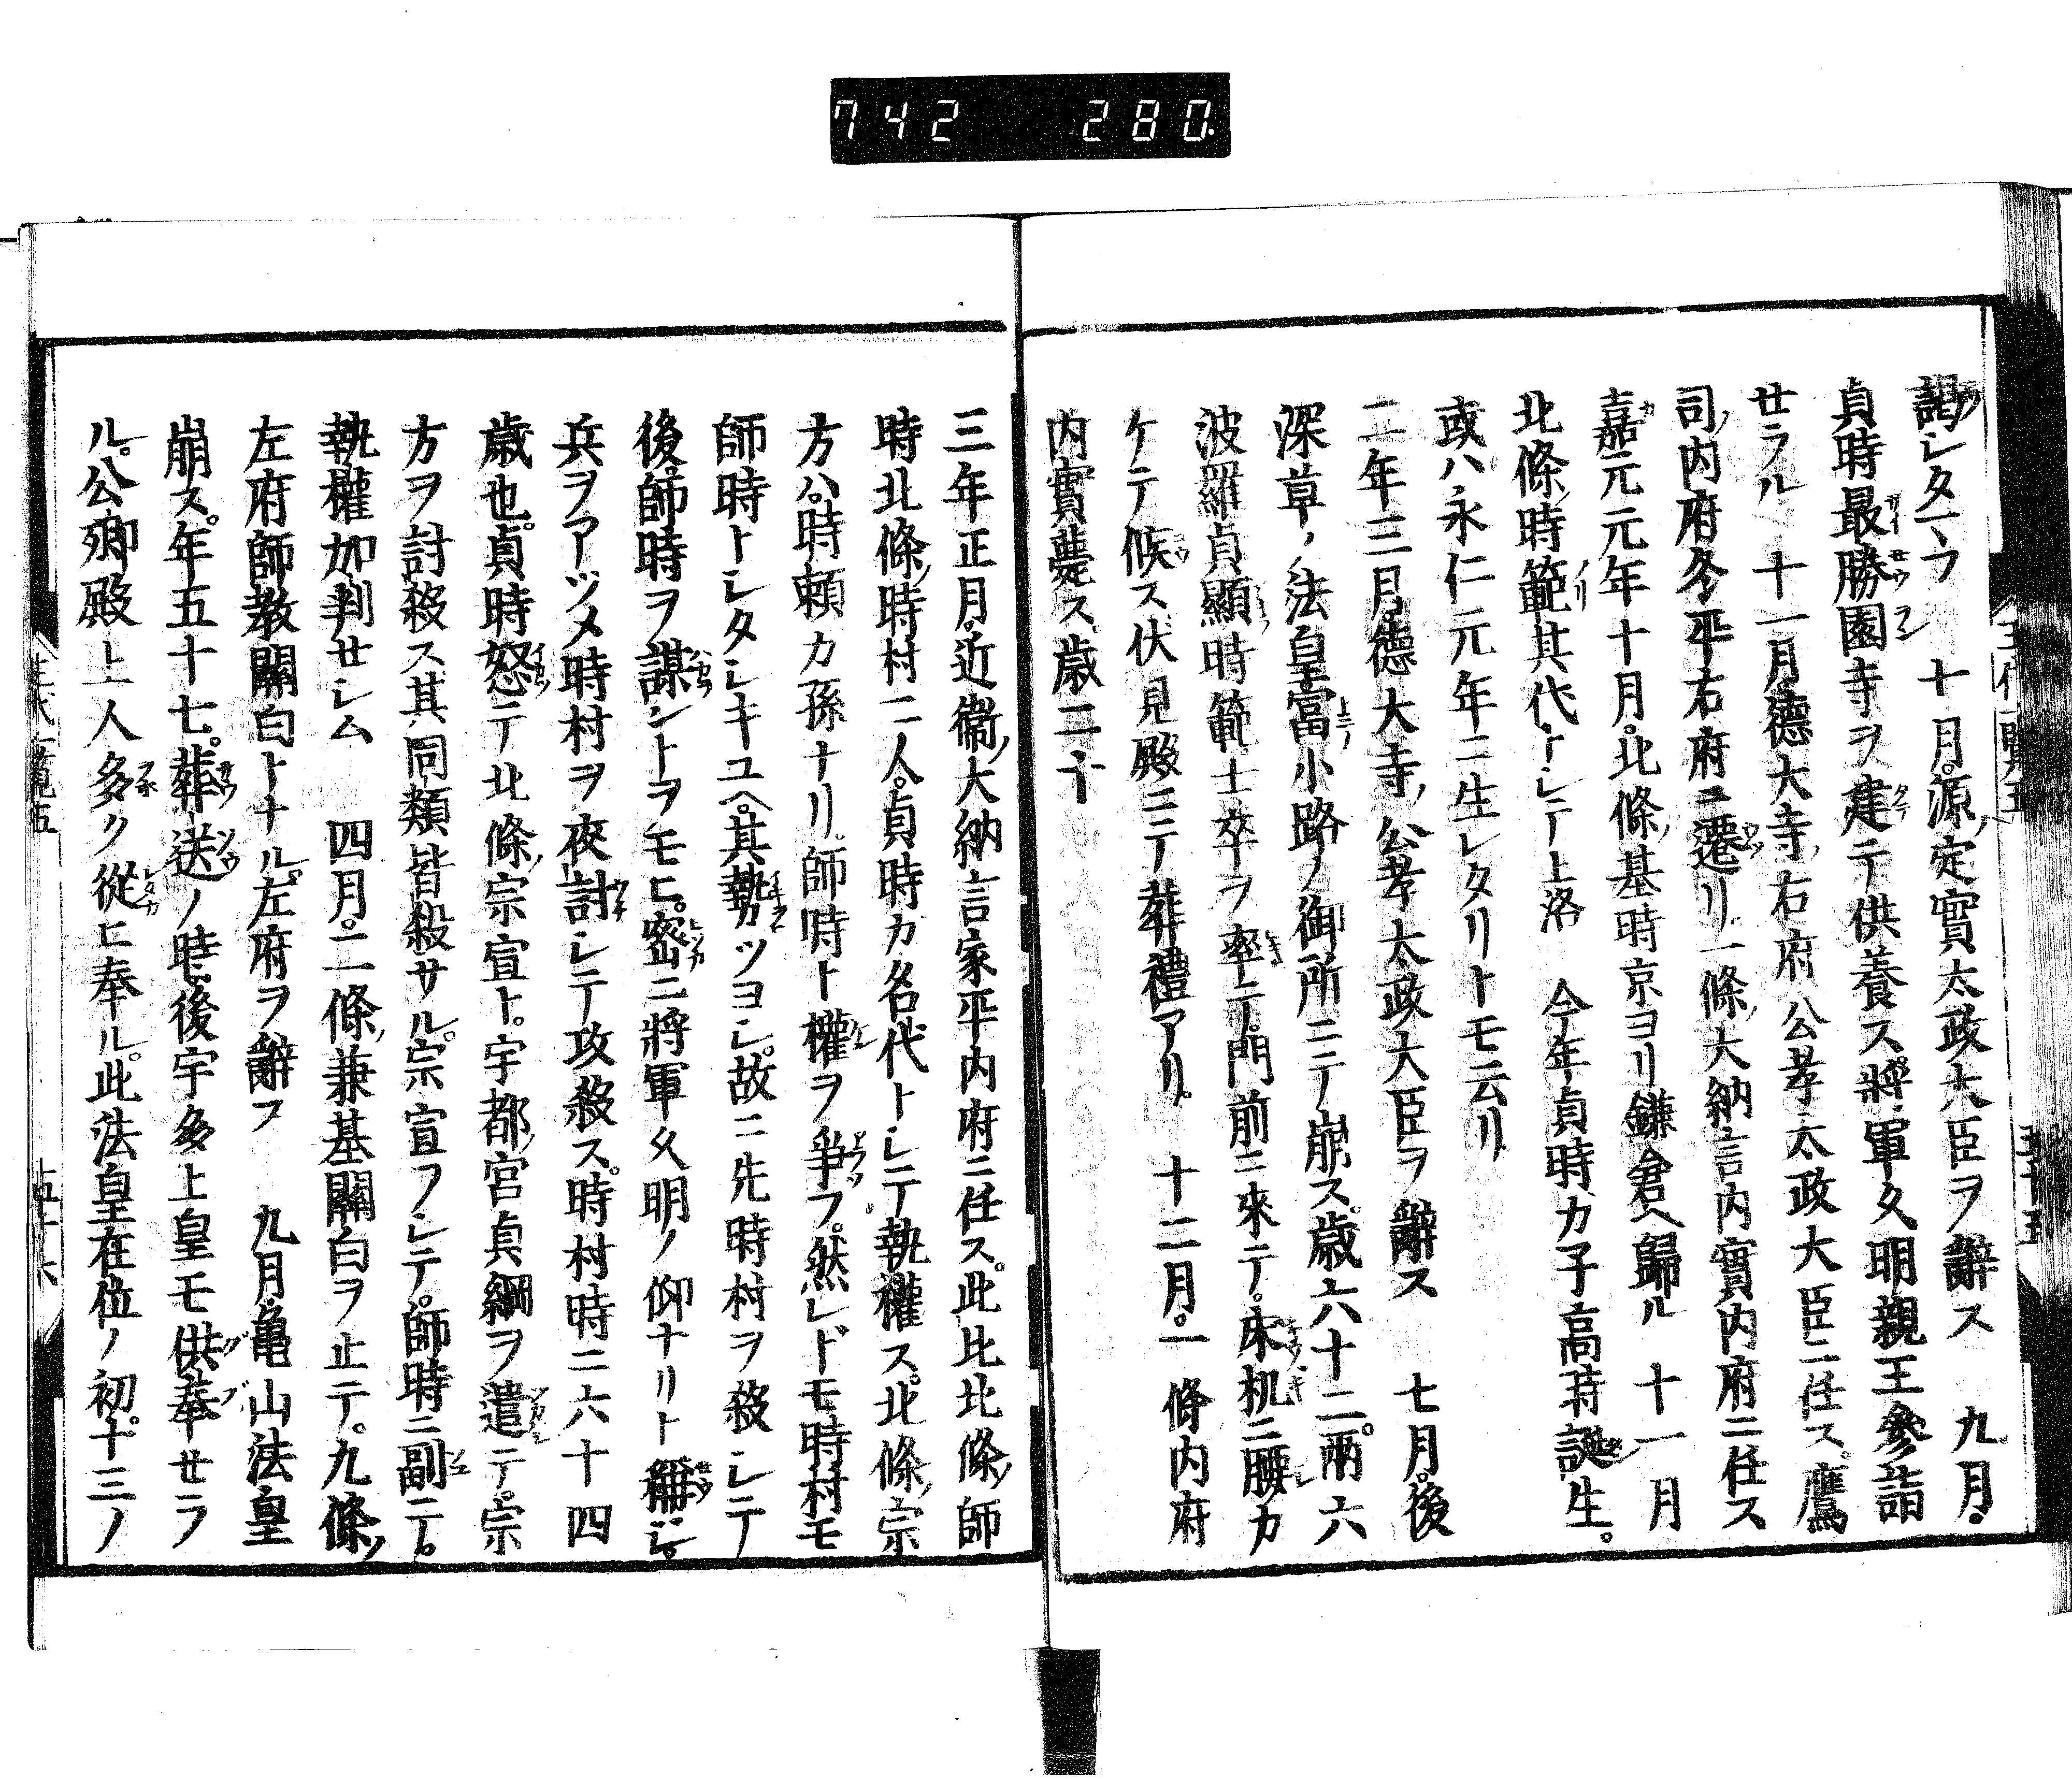 742 280
謁シタマフ 十月源定實太政大臣ヲ辭ス 九月
貞時最勝園寺ヲ建テ供養ス將軍久明親王參詣
セラル 十一月德大寺右府公孝太政大臣ニ任ス鷹
司内府冬平右府ニ遷リ一條大納言内實内府ニ任ス
嘉元元年十月北條基時京ヨリ鎌倉ヘ歸ル 十一月
北條時範其代トシテ上洛 今年貞時カ子高時誕生
或ハ永仁元年ニ生レタリトモ云リ
二年三月德大寺公孝太政大臣ヲ辭ス 七月後
深草ノ法皇富小路ノ御所ニテ崩ス歳六十二兩六
波羅貞顯時範士卒ヲ率テ門前ニ來テ床机ニ腰カ
ケテ候ス伏見殿ニテ葬禮アリ 十二月一條内府
内實薨ス歳二十
三年正月近衞大納言家平内府ニ任ス此比北條師
時北條時村二人貞時カ名代トシテ執權ス北條宗
方ハ時頼カ孫ナリ師時ト權ヲ爭フ然レドモ時村モ
師時トシタシキユヘ其勢ツヨシ故ニ先時村ヲ殺シテ
後師時ヲ謀ントヲモヒ密ニ將軍久明ノ仰ナリト稱シ
兵ヲアツメ時村ヲ夜討シテ攻殺ス時村時ニ六十四
歳也貞時怒テ北條宗宣ト宇都宮貞綱ヲ遣テ宗
方ヲ討殺ス其同類皆殺サル宗宣ヲシテ師時ニ副テ
執權加判セシム 四月二條兼基關白ヲ止テ九條
左府師教關白トナル左府ヲ辭ス 九月亀山法皇
崩ス年五十七葬送ノ時後宇多上皇モ供奉セラ
ル公卿殿上人多ク從ヒ奉ル此法皇在位ノ初十三ノ